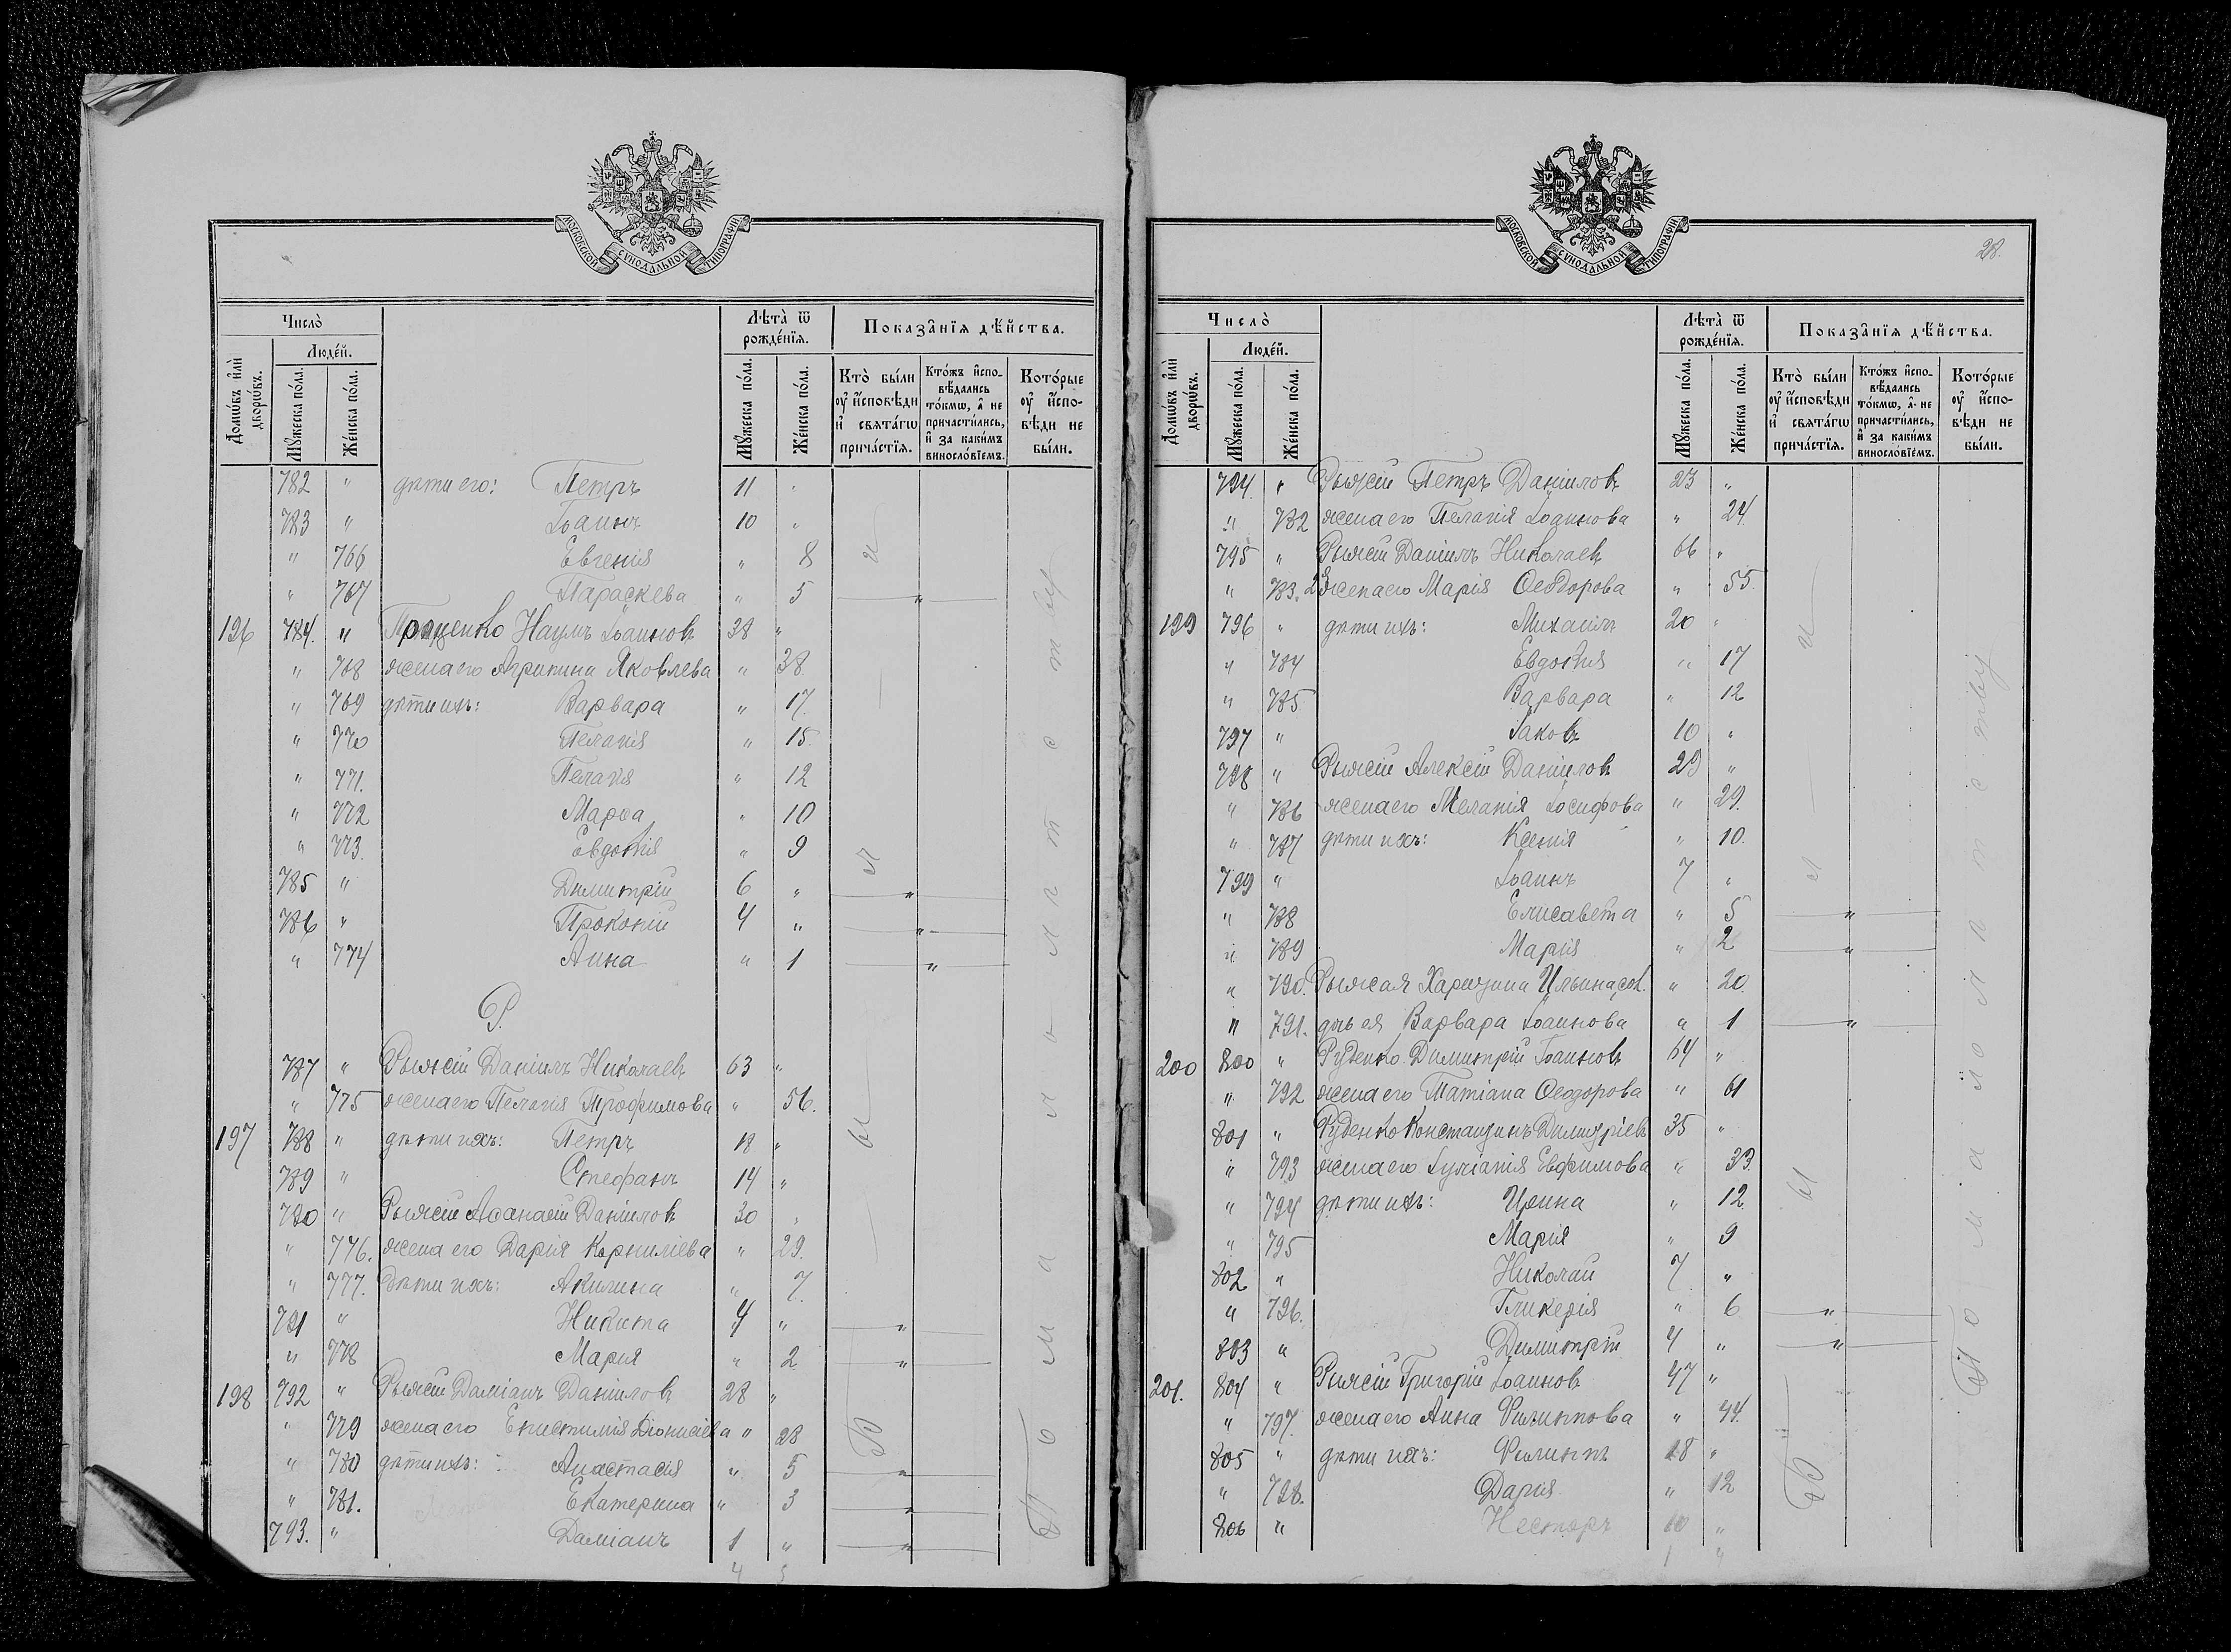 МОСКОВСКОЙ СѴНОДАЛЬНОЙ ТИПОГРАФІИ
Число̀
Людéй.
Домѡ́въ и҆лѝ дворѡ́въ.
Мꙋ́жеска по́ла.
Же́нска по́ла.
Лѣта̀ ѿ рожде́нїѧ.
Мꙋ́жеска по́ла.
Же́нска по́ла.
Показа̑нїѧ дѣ́йства.
Кто̀ бы́ли оу҆ и҆́сповѣди и҆ свѧта́гѡ прича́стїѧ.
Кто́жъ и҆спо- вѣ́дались то́кмѡ, а҆ не причасти́лись, и҆ за каки́мъ винослóвїемъ.
Кото́рые оу҆ и҆́спо- вѣди не бы́ли.
782 " дѣти его: Петръ 11 "
783 " Іоаннъ 10 "
" 766 Евгенія " 8
" 767 Параскева " 5 "
196 784. " Проценко Наумъ Іоанновъ 38 "
" 768 жена его Агрипина Яковлева " 38
" 769 дѣти ихъ: Варвара " 17
" 770 Пелагія " 15
" 771. Пелагія " 12
" 772 Марѳа " 10
" 773. Евдокія " 9
785 " Димитрій 6 " "
786 " Прокопій 4 " "
" 774 Анна " 1 "
Р.
787 " Рыжій Даніилъ Николаевъ 63 "
" 775 жена его Пелагія Трофимова " 56.
197 788 " дѣти ихъ: Петръ 18 "
789 " Стефанъ 14 "
790 " Рыжій Аѳанасій Даніиловъ 30 "
" 776. жена его Дарія Корниліева " 29.
" 777. дѣти ихъ: Акилина " 7.
791 " Никита 4 " "
" 778 Марія " 2 "
198 792 " Рыжій Даміанъ Даніиловъ 28 "
" 779 жена его Епистимія Діонисіева " 28
" 780 дѣти ихъ: Анастасія " 5 "
" 781. Екатерина " 3 "
793. " Даміанъ 1 " "
Были
По малолѣтству
МОСКОВСКОЙ СѴНОДАЛЬНОЙ ТИПОГРАФІИ
28.
Число̀
Людéй.
Домѡ́въ и҆лѝ дворѡ́въ.
Мꙋ́жеска по́ла.
Же́нска по́ла.
Лѣта̀ ѿ рожде́нїѧ.
Мꙋ́жеска по́ла.
Же́нска по́ла.
Показа̑нїѧ дѣ́йства.
Кто̀ бы́ли оу҆ и҆́сповѣди и҆ свѧта́гѡ прича́стїѧ.
Кто́жъ и҆спо- вѣ́дались то́кмѡ, а҆ не причасти́лись, и҆ за каки́мъ винослóвїемъ.
Кото́рые оу҆ и҆́спо- вѣди не бы́ли.
794. " Рыжій Петръ Даніиловъ 23 "
" 782 жена его Пелагія Іоаннова " 24.
795 " Рыжій Даніилъ Николаевъ 66 "
" 783. 2я жена его Марія Ѳеодорова " 55.
199 796 " дѣти ихъ: Михаилъ 20 "
" 784 Евдокія " 17
" 785 Варвара " 12
797 " Іаковъ 10 "
798 " Рыжій Алексій Даніиловъ 29 "
" 786 жена его Меланія Іосифова " 29.
" 787 дѣти ихъ: Ксенія " 10.
799 " Іоаннъ 7 "
" 788 Елисавета " 5 "
" 789 Марія " 2 "
" 790. Рыжая Харитина Ильина " 20.
" 791. дочь ея Варвара Іоаннова " 1 "
200 800 " Руденко Димитрій Іоанновъ 64 "
" 792 жена его Татіана Ѳеодорова " 61
801 " Руденко Константинъ Димитріевъ 35 "
" 793 жена его Іуліанія Евфимова " 33.
" 794 дѣти ихъ: Ирина " 12
" 795 Марія " 9
802 " Николай 7 "
" 796. Гликерія " 6 "
803 " Димитрій 4 " "
201. 804 " Рыжій Григорій Іоанновъ 47 "
" 797. жена его Анна Филиппова " 44.
805 " дѣти ихъ: Филиппъ 18 "
" 798. Дарія " 12
806 " Несторъ 10 "
Были
По малолѣтству